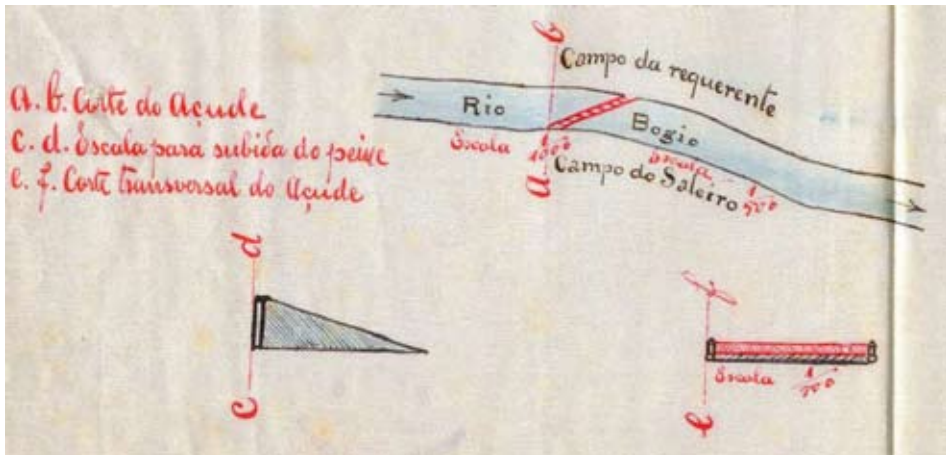 a. b. Corte do Açude
c. d. Escala para subida do peixe
e. f. Corte transversal do Açude
b
Campo da requerente
Rio
Bogio
Escala 1/1000
Escala 1/500
Campo do Saleiro
a
d
c
f
Escala 1/200
e